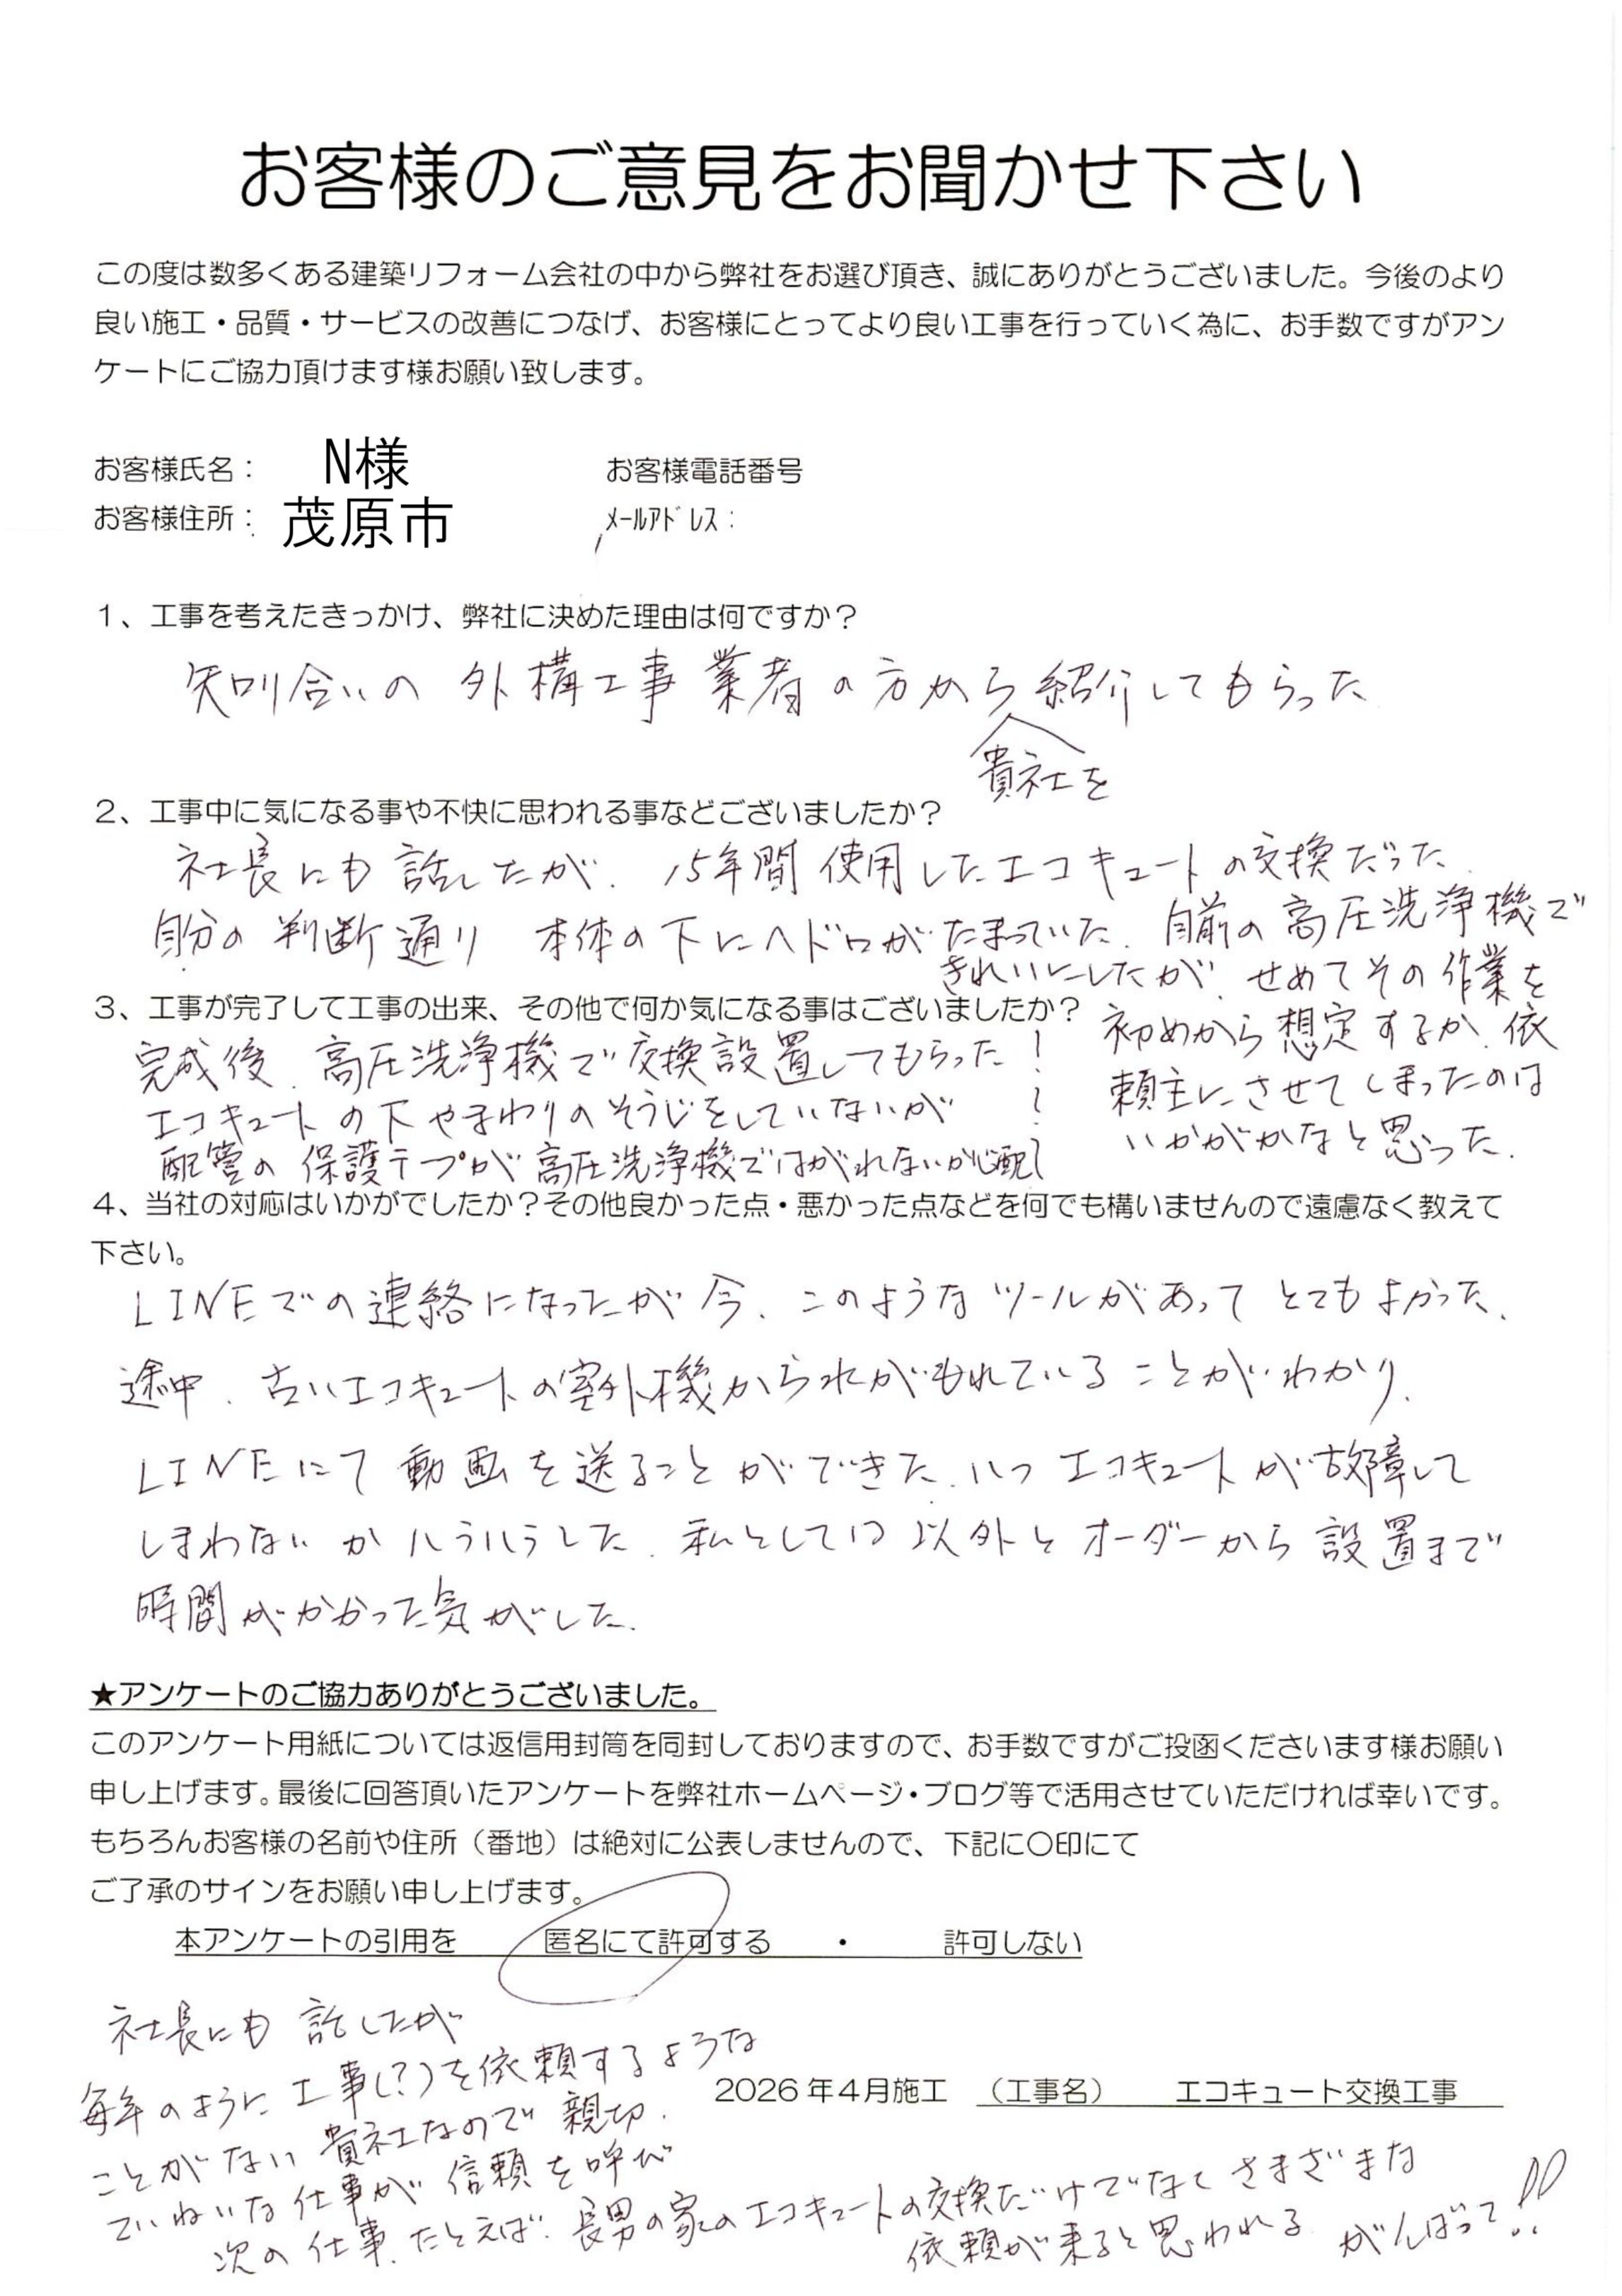 お客様のご意見をお聞かせ下さい
この度は数多くある建築リフォーム会社の中から弊社をお選び頂き、誠にありがとうございました。今後のより
良い施工・品質・サービスの改善につなげ、お客様にとってより良い工事を行っていく為に、お手数ですがアン
ケートにご協力頂けます様お願い致します。
お客様氏名： N様 お客様電話番号
お客様住所： 茂原市 ﾒｰﾙｱﾄﾞﾚｽ：
１、工事を考えたきっかけ、弊社に決めた理由は何ですか？
知り合いの 外構工事業者の方から紹介してもらった
貴社を
２、工事中に気になる事や不快に思われる事などございましたか？
社長にも話したが、15年間使用したエコキュートの交換だった
自分の判断通り 本体の下にヘドロがたまっていた、自前の高圧洗浄機で
きれいにしたが、せめてその作業を
初めから想定するか、依
頼主にさせてしまったのは
いかがかなと思った.
３、工事が完了して工事の出来、その他で何か気になる事はございましたか？
完成後、高圧洗浄機で交換設置してもらった
エコキュートの下やまわりのそうじをしていないが
配管の保護テープが高圧洗浄機ではがれないか心配
４、当社の対応はいかがでしたか？その他良かった点・悪かった点などを何でも構いませんので遠慮なく教えて
下さい。
LINEでの連絡になったが今、このようなツールがあってとてもよかった、
途中、古いエコキュートの室外機から水がもれていることがわかり、
LINEにて動画を送ることができた、いつエコキュートが故障して
しまわないかハラハラした、私としては以外とオーダーから設置まで
時間がかかった気がした.
★アンケートのご協力ありがとうございました。
このアンケート用紙については返信用封筒を同封しておりますので、お手数ですがご投函くださいます様お願い
申し上げます。最後に回答頂いたアンケートを弊社ホームページ・ブログ等で活用させていただければ幸いです。
もちろんお客様の名前や住所（番地）は絶対に公表しませんので、下記に〇印にて
ご了承のサインをお願い申し上げます。
本アンケートの引用を 匿名にて許可する ・ 許可しない
社長にも話したが
毎年のように工事(?)を依頼するような
ことがない貴社なので親切、
ていねいな仕事が信頼を呼び
次の仕事、たとえば、長男の家のエコキュートの交換だけでなくさまざまな
依頼が来ると思われる がんばって!!
2026年４月施工 （工事名） エコキュート交換工事